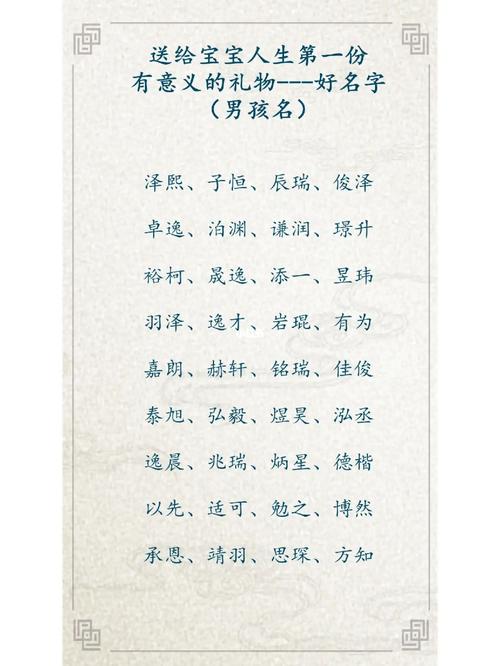 送给宝宝人生第一份
有意义的礼物---好名字
（男孩名）
泽熙、子恒、辰瑞、俊泽
卓逸、泊渊、谦润、璟升
裕柯、晟逸、添一、昱玮
羽泽、逸才、岩琨、有为
嘉朗、赫轩、铭瑞、佳俊
泰旭、弘毅、煜昊、泓丞
逸晨、兆瑞、炳星、德楷
以先、适可、勉之、博然
承恩、靖羽、思琛、方知